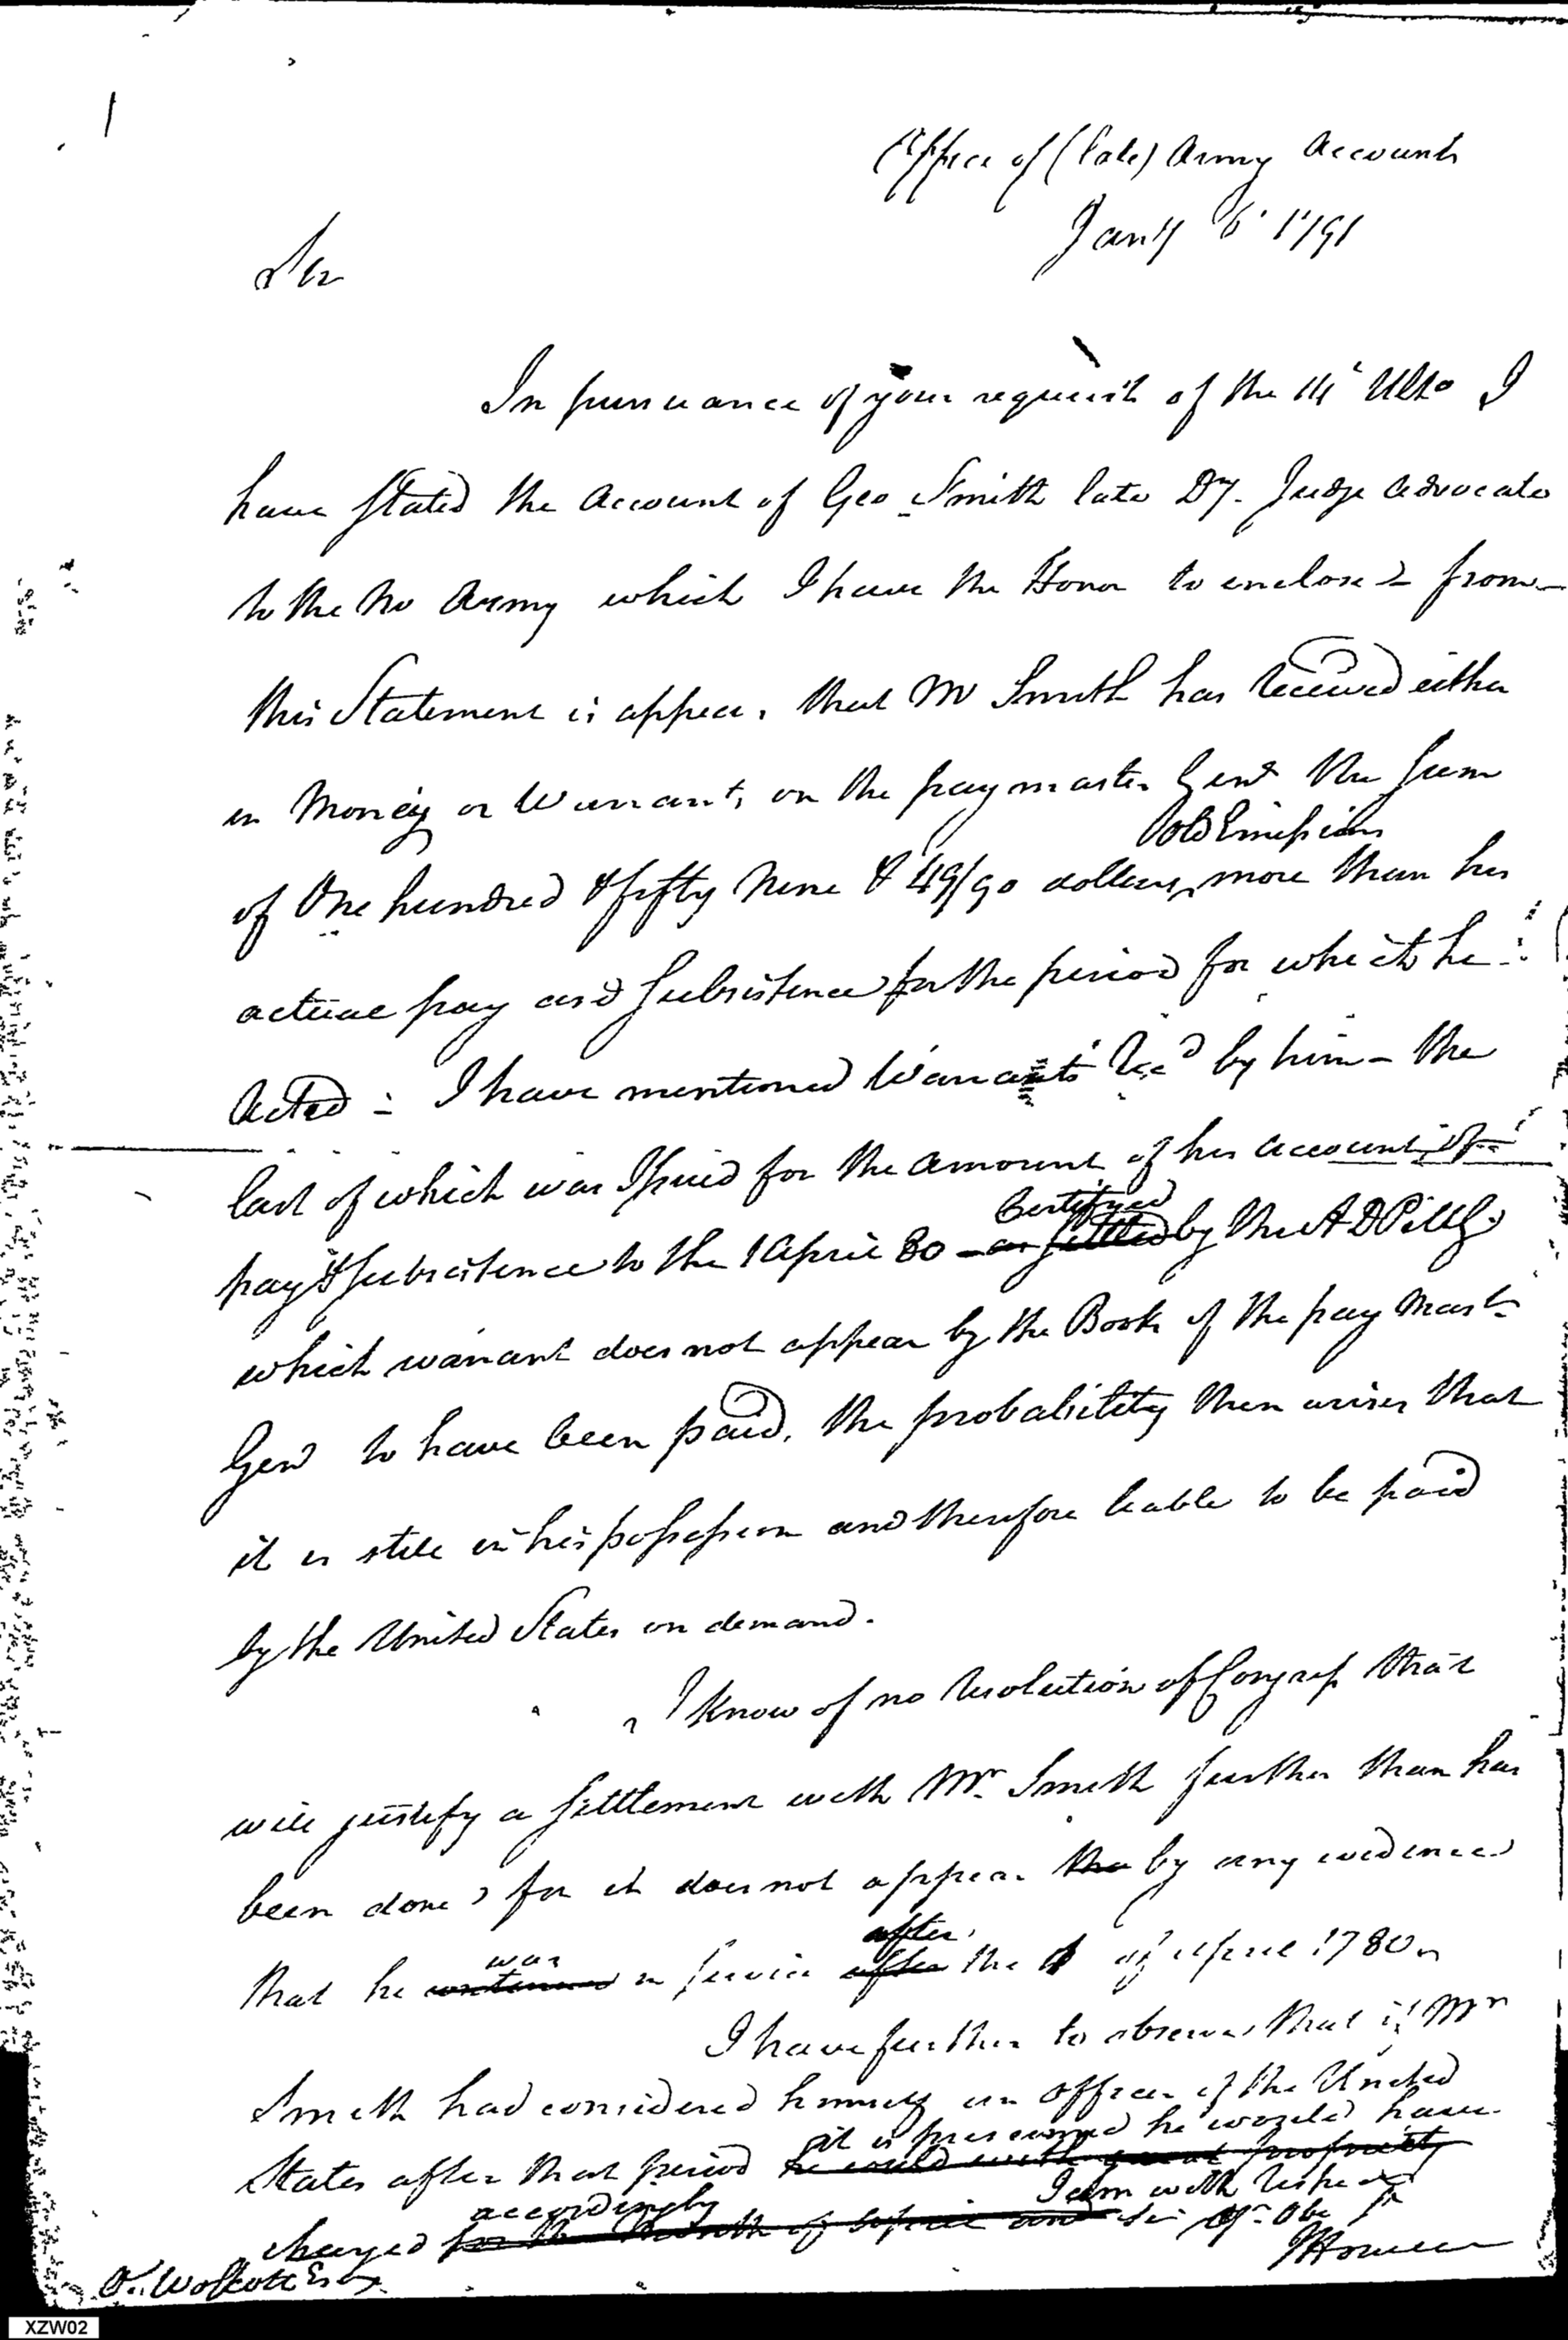 Office of (late) Army Accounts
Jany 6 1791
Sir
In pursuance of your request of the 14 Ulto I
have Stated the Account of Geo Smith late Dy. Judge Advocate
to the No Army which I have the Honor to enclose & from
this Statement it appears that Mr Smith has received either
in Money or Warrants on the paymaster Genl the Sum
Old Emissions
of One hundred & fifty Nine & 49/90 dollars more than his
actual pay and Subsistence for the period for which he
Acted - I have mentioned Warrants Recd by him - the
last of which was Issued for the Amount of his account of
Certifyed
pay & Subsistence to the 1 April 80 - as settled by the
which warrant does not appear by the Books of the pay Mastr
Genl to have been paid, the probability then arises that
it is still in his possession and therefore liable to be paid
by the United States on demand.
I know of no resolution of Congress that
will justify a Settlement with Mr. Smith further than has
been done, for it does not appear tha by any evidence
was after
that he continued in Service after the 1 of April 1780
I have further to observe that if Mr
Smith had considered himself an Officer of the United
it is presumed he would have
States after that period he could with great propriety
accordingly I am with respect
charged for the Month of April and Sir Yr Obt
JHowell
O. Wolcott Esqr
XZW02